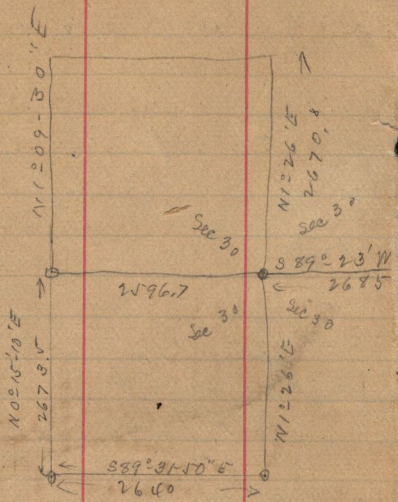 N1°=09-30"E
N1°=26'E
2670.8
Sec 30
Sec 30
S89°-23'W
2685
2596.7
Sec 30
Sec 30
N0°=15'10"E
2673.5
N1°=26'E
S89°-31-50"E
2640